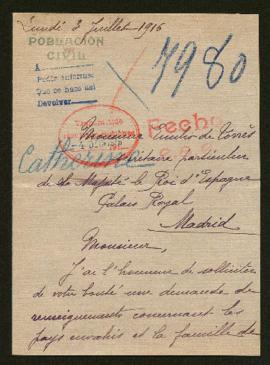 Lundi 3 Juillet-1916
POBLACIÓN
CIVIL
A
Pedir informes
Que se hace así
Devolver
7980
Fecho
Monsieur Emilio de Torrès
Catherine
Secrétaire particulier
de Sa Majesté le Roi d'Espagne
Palais Royal
Madrid
Monsieur,
J'ai l'honneur de solliciter
de votre bonté une demande de
renseignements concernant les
pays envahis et la famille de